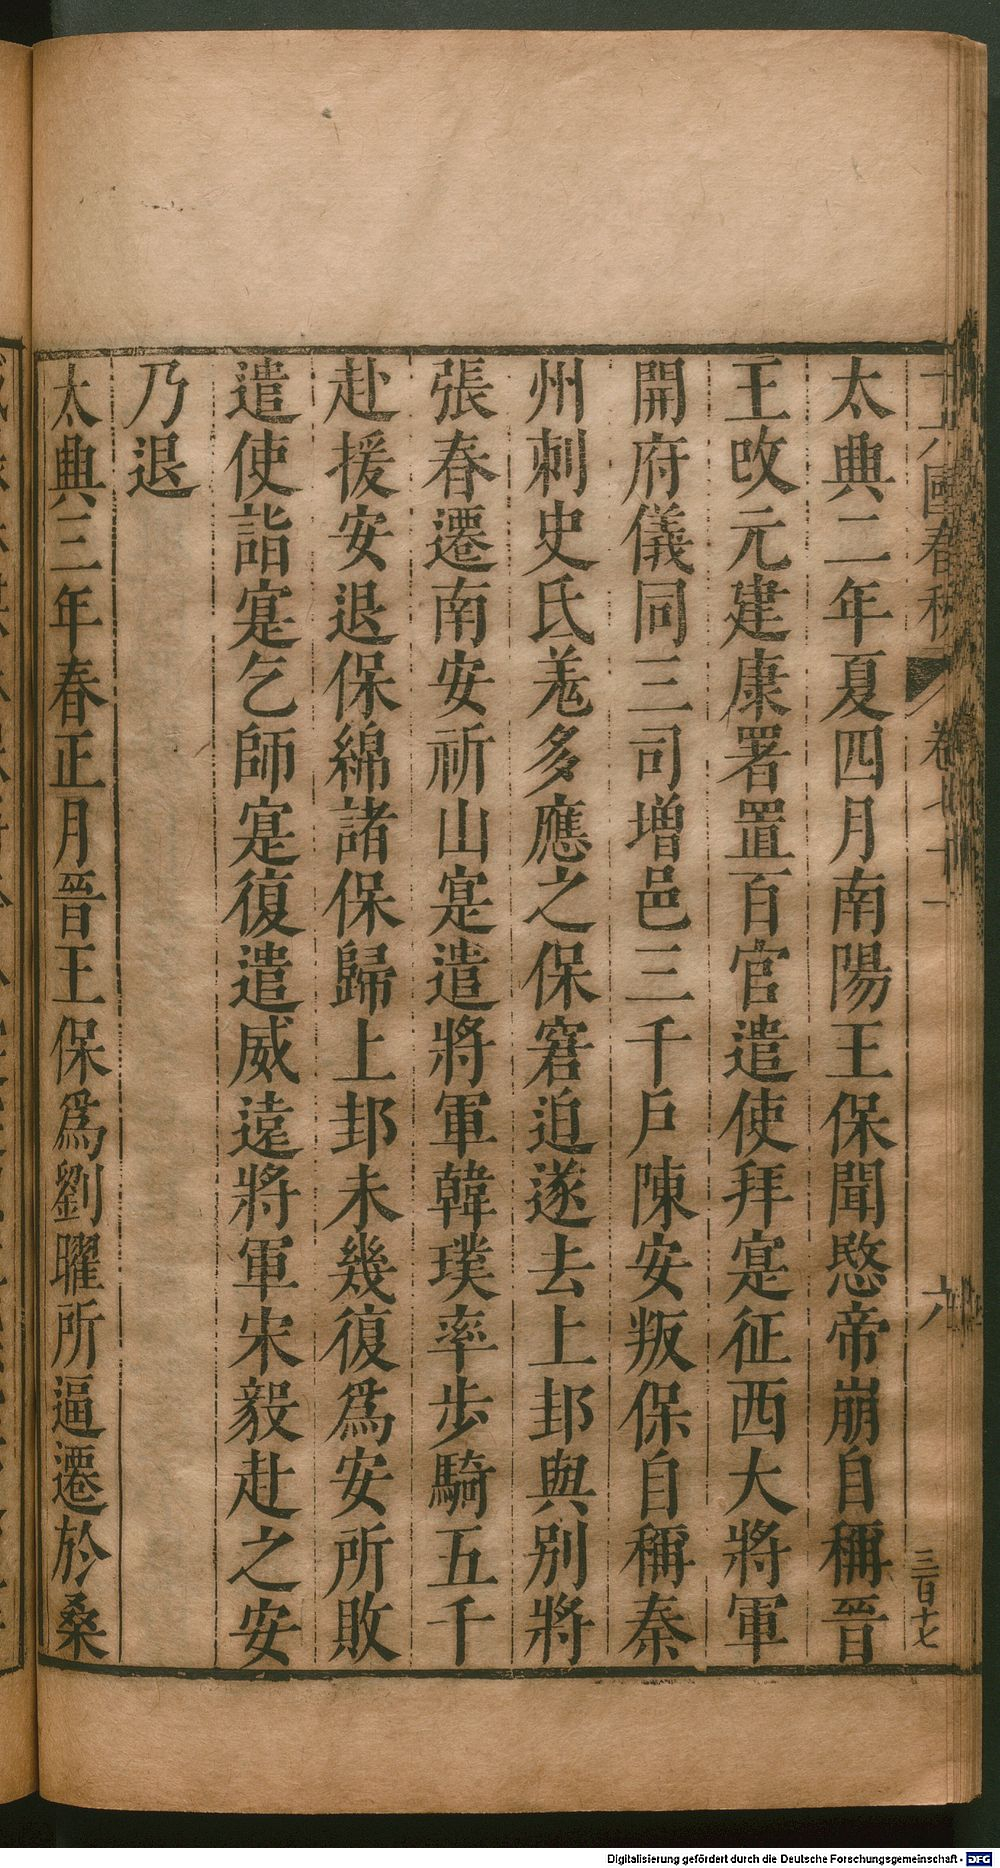 十六國春秋
卷七十
六
三百十七
太興二年夏四月南陽王保聞愍帝崩自稱晉
王改元建康署置百官遣使拜寔征西大將軍
開府儀同三司增邑三千戶陳安叛保自稱秦
州刺史氐羌多應之保窘迫遂去上邽與別將
張春遷南安祈山寔遣將軍韓璞率步騎五千
赴援安退保綿諸保歸上邽未幾復爲安所敗
遣使詣寔乞師寔復遣威遠將軍宋毅赴之安
乃退
太興三年春正月晉王保爲劉曜所逼遷於桑
Digitalisierung gefördert durch die Deutsche Forschungsgemeinschaft - DFG